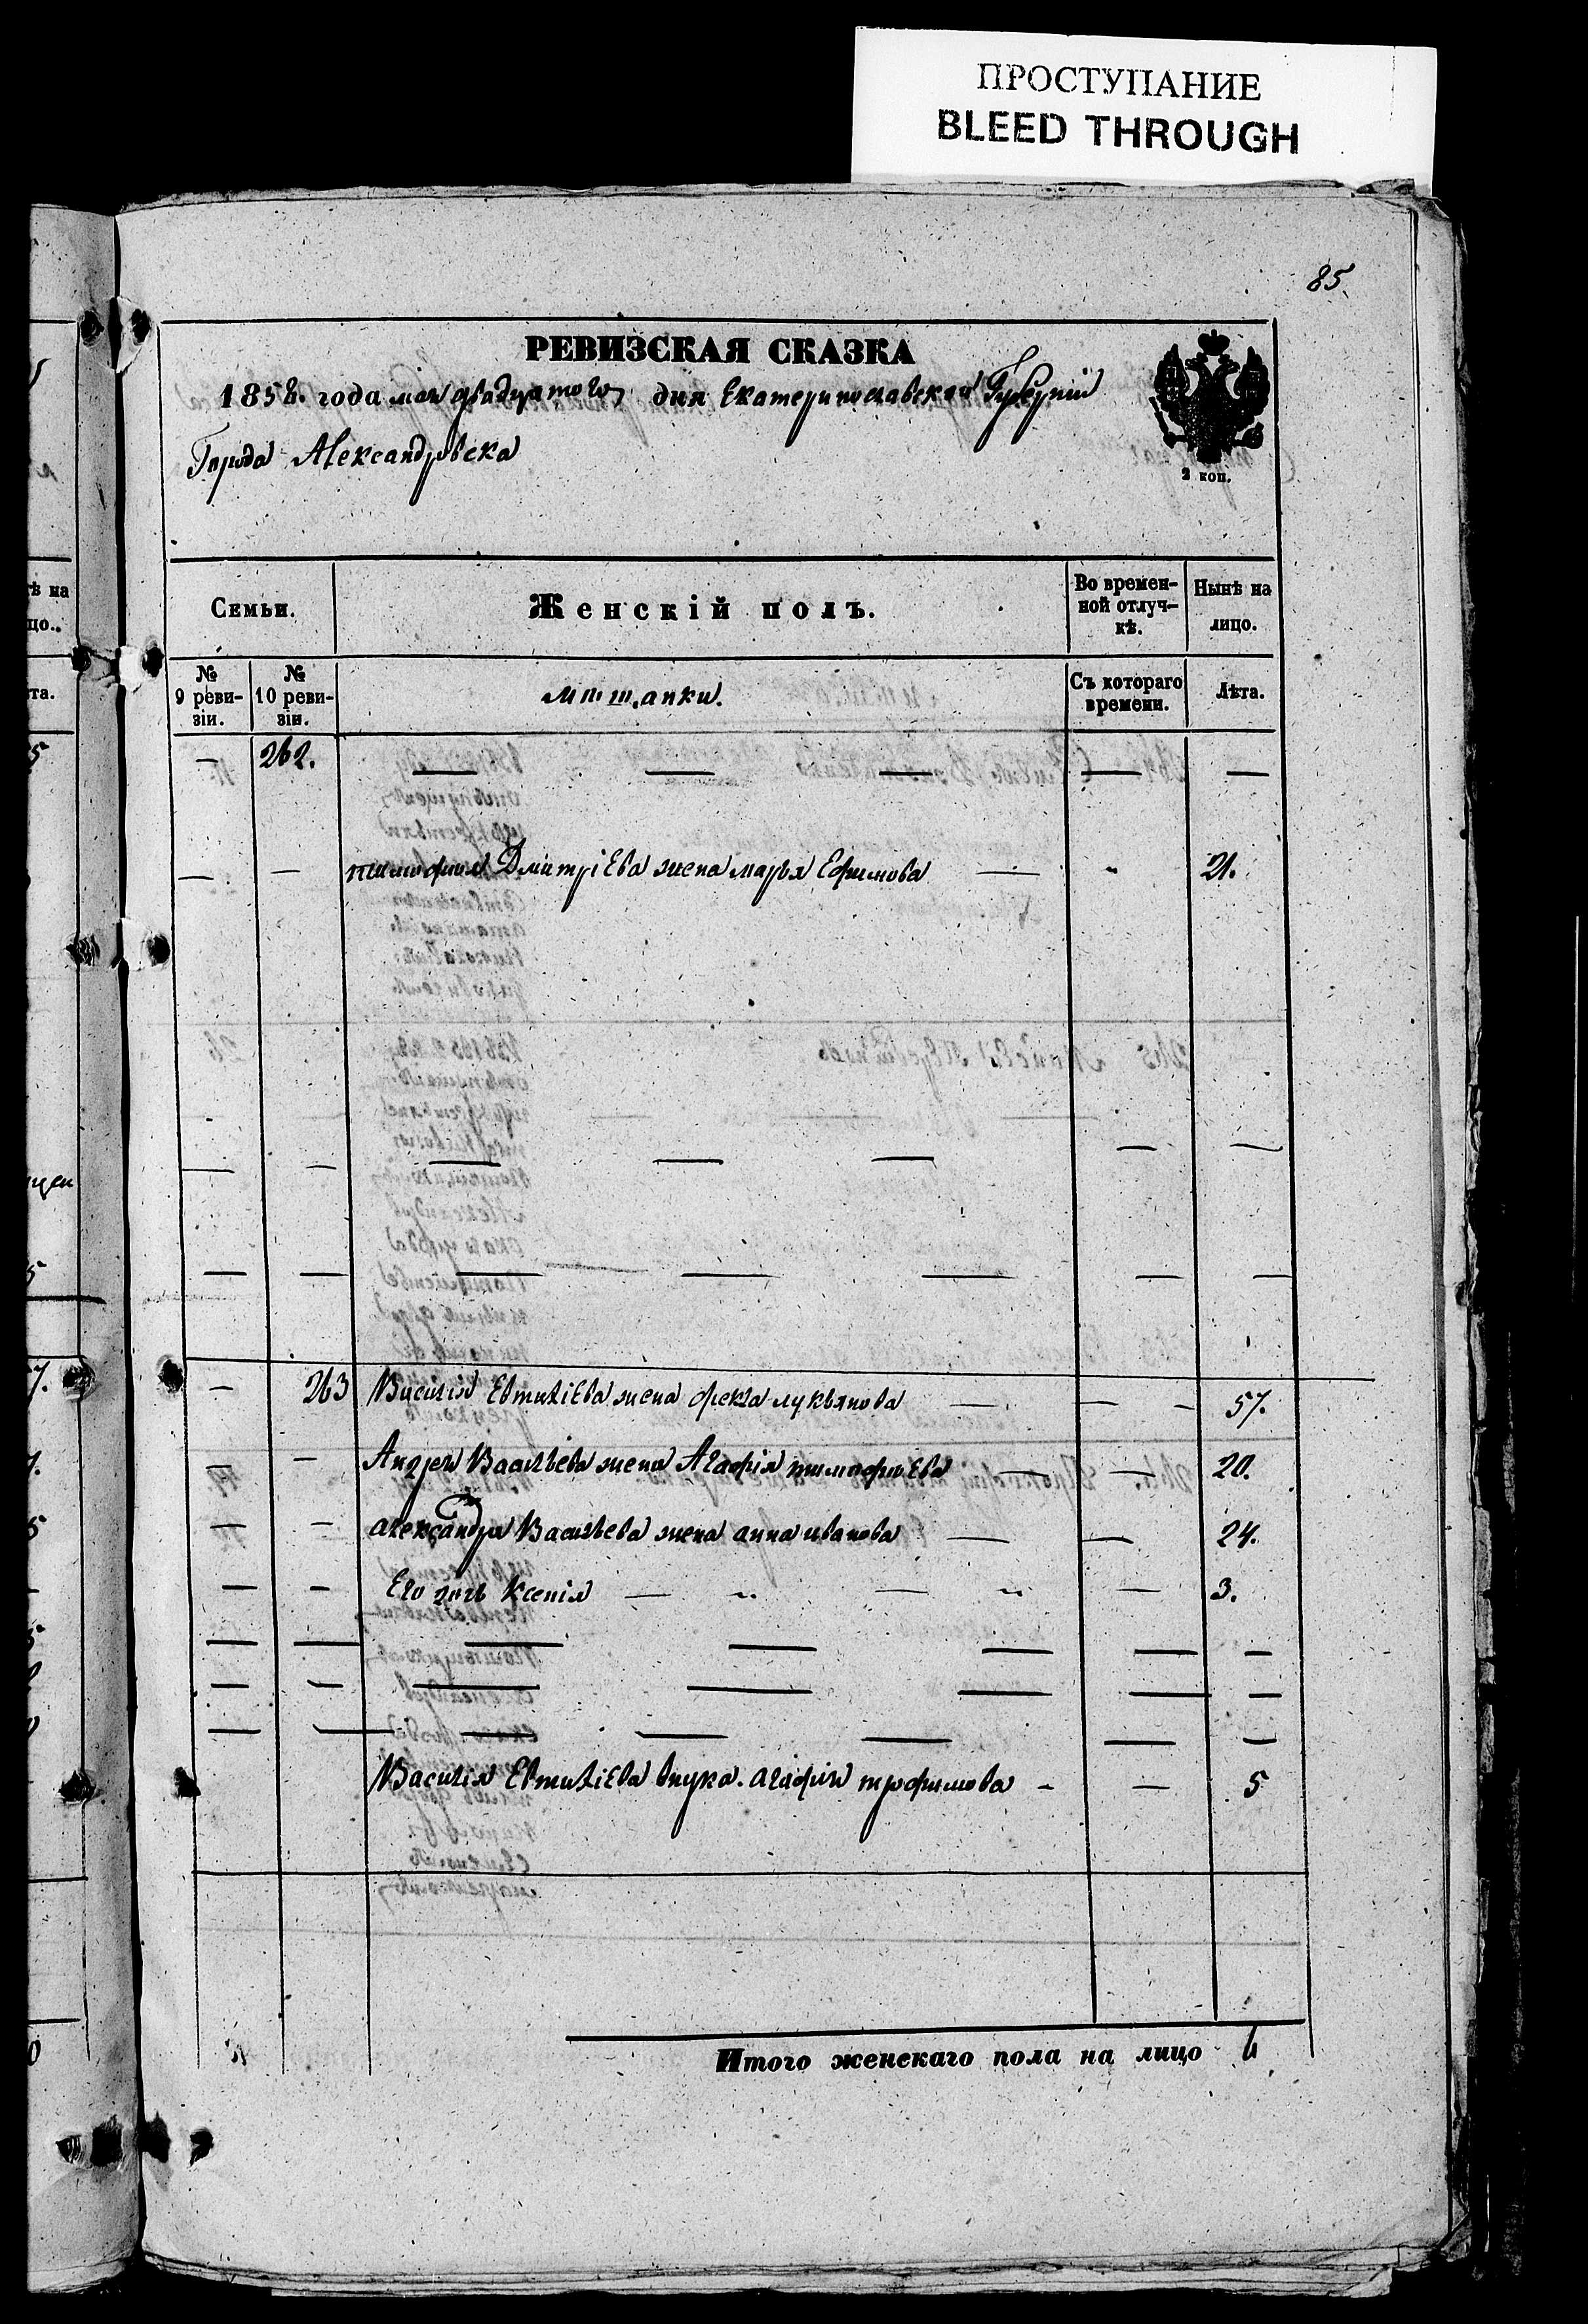 ПРОСТУПАНИЕ
BLEED THROUGH
85.
РЕВИЗСКАЯ СКАЗКА
1858. года мая двадцатого дня Екатеринославской Губерніи
Города Александровска
2 коп.
Семьи. Женскій полъ. Во времен-ной отлуч-кѣ. Нынѣ на лицо.
№ 9 реви-зіи. № 10 реви-зіи. мѣщанки. Съ котораго времени. Лѣта.
— 262. — — — — —
— — тимофея Дмитріева жена марья Ефимова — - 21.
— — — — — — —
— — — — — — —
— 263 Василія Евтихіева жена фекла лукьянова — — - 57.
— — Андрея Васильева жена Агафія тимофиева — — 20.
— — александра Васильева жена анна иванова — — 24.
— — Его дочь Ксенія — „ — „ — 3.
— — — — — — —
— — — — — — —
— — — — — — —
Василія Евтихіева внука. агафія трофимова - — 5
Итого женскаго пола на лицо 6